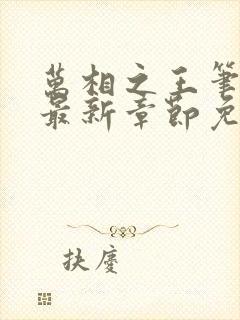 萬相之王筆
最新章節免
扶慶